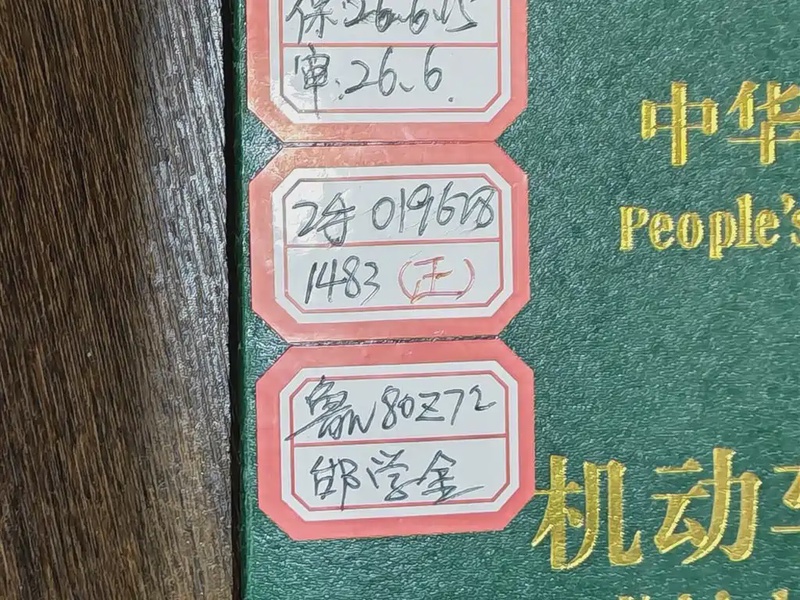 保:26.6.15
审:26.6.
2手019628
1483(正)
鲁N80Z72
邯学金
中华
People's
机动车